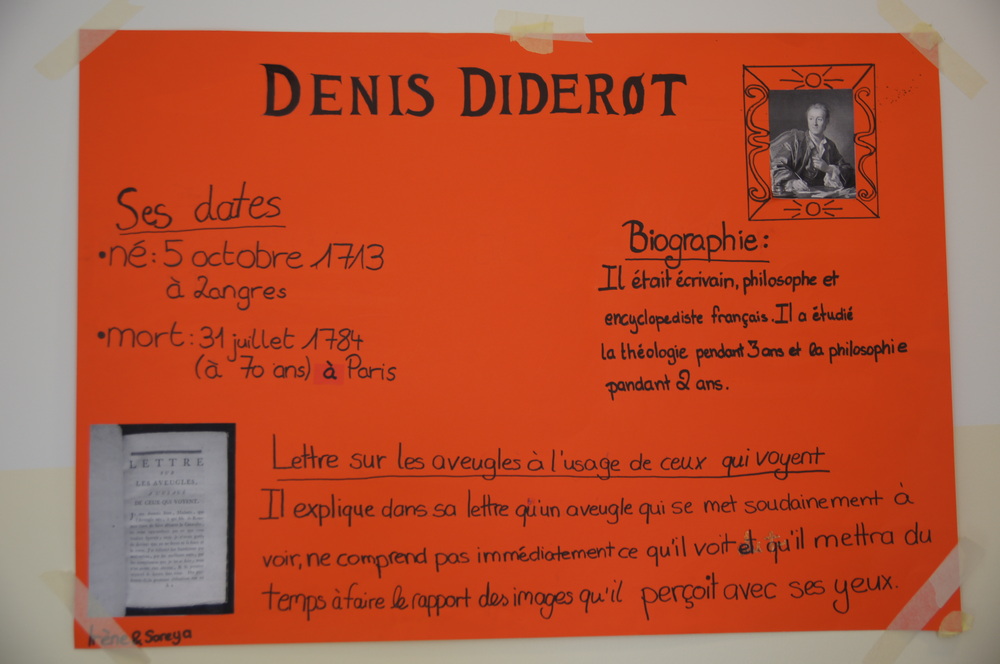 DENIS DIDEROT
Ses dates
•né: 5 octobre 1713
à Langres
•mort: 31 juillet 1784
(à 70 ans) à Paris
Biographie:
Il était écrivain, philosophe et
encyclopediste français. Il a étudié
la théologie pendant 3 ans et la philosophie
pandant 2 ans.
LETTRE
SUR
LES AVEUGLES,
A L'USAGE
DE CEUX QUI VOYENT.
Lettre sur les aveugles à l'usage de ceux qui voyent
Il explique dans sa lettre qu'un aveugle qui se met soudainement à
voir, ne comprend pas immédiatement ce qu'il voit et qu'il mettra du
temps à faire le rapport des images qu'il perçoit avec ses yeux.
Irène & Soreya